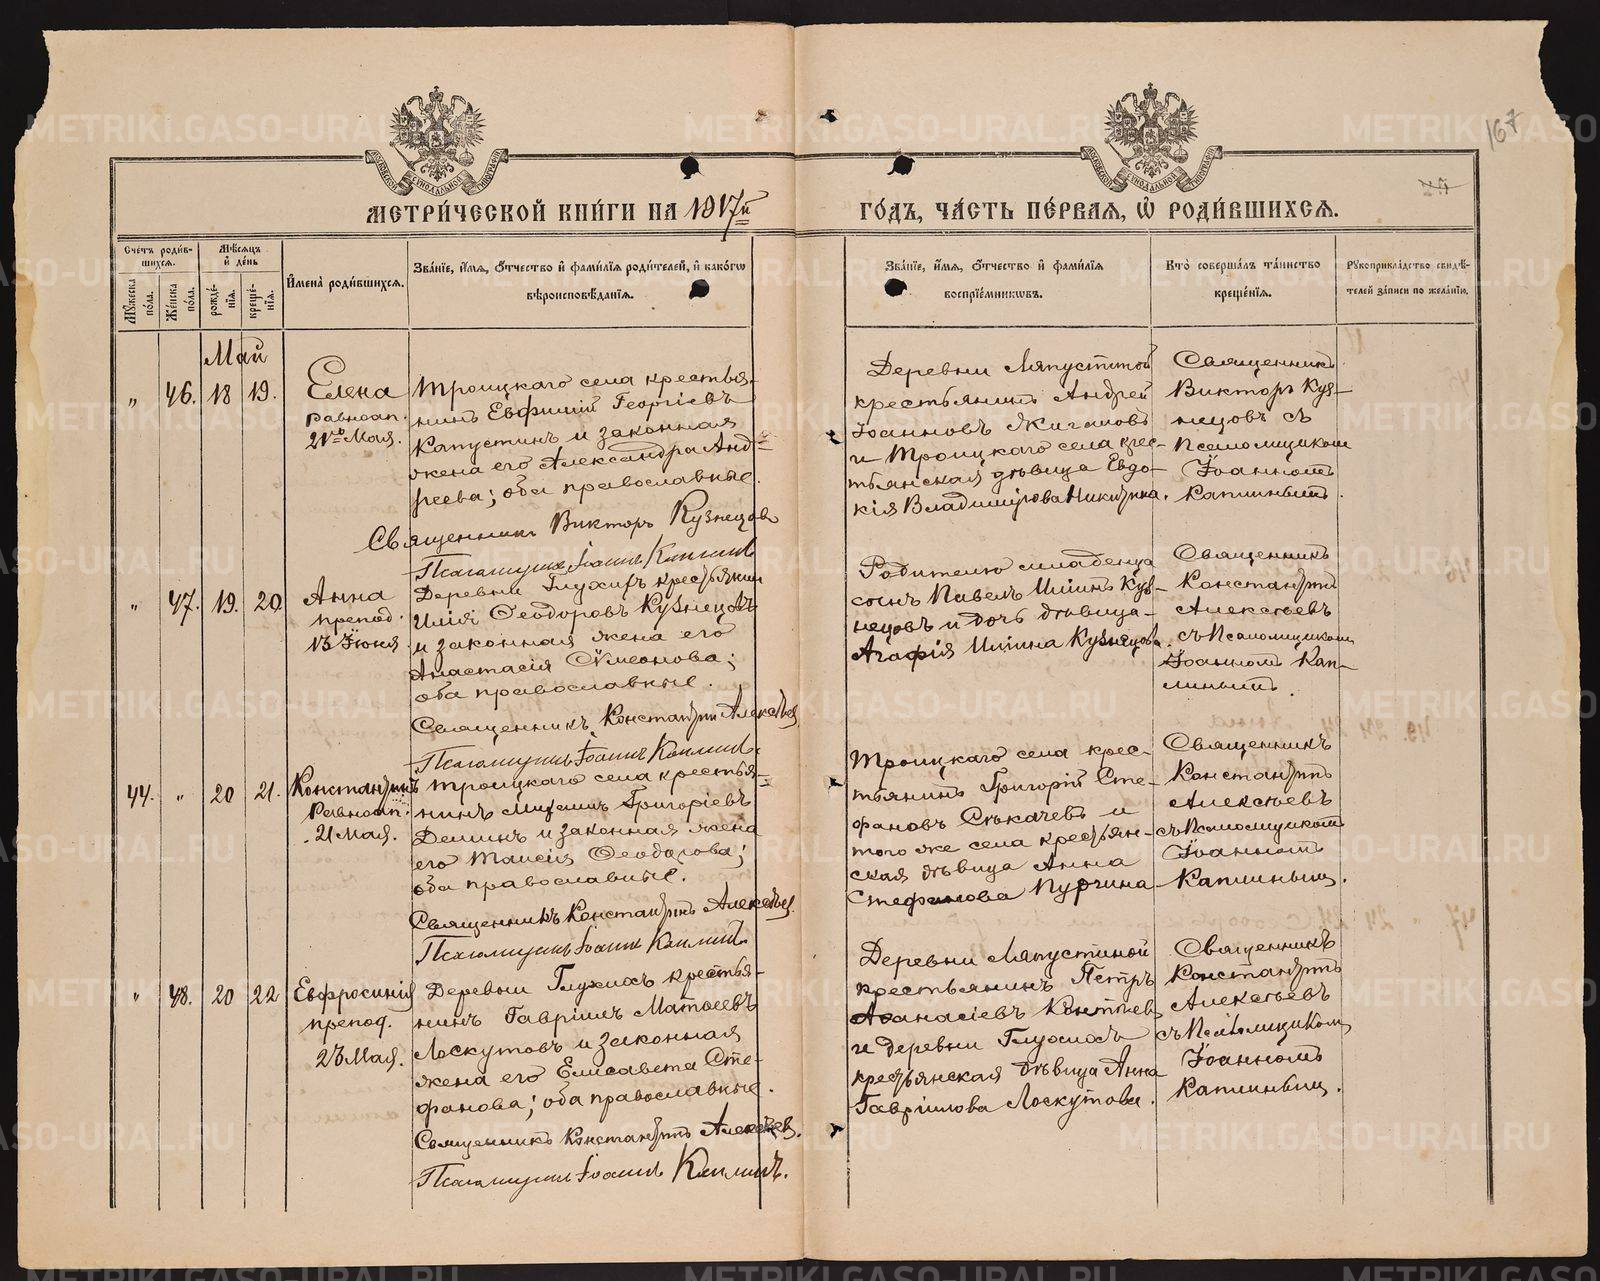 167
МЕТРИ́ЧЕСКОЙ КНИ́ГИ НА 1917й
ГО́ДЪ, ЧА́СТЬ ПЕ́РВАЯ, Ѡ҆ РОДИ́ВШИХСЯ.
Счетъ роди́в-
шихся.
Му́жеска
по́ла.
Же́нска
по́ла.
Мѣ́сяцъ
и҆ де́нь
рожде́-
нія.
креще́-
нія.
И҆мена̀ роди́вшихся.
Зва́нїе, и҆́мя, ѻ҆́тчество и҆ фами́лїя роди́телей, и҆ како́гѡ
вѣроисповѣ́данїя.
Зва́нїе, и҆́мя, ѻ҆́тчество и҆ фами́лїя
воспрїе́мникѡвъ.
Кто̀ соверша́лъ та́инство
креще́нїя.
Рꙋкоприкла́дство свидѣ́-
телей за́писи по жела́нїю.
Май
" 46. 18 19.
Елена
равноап.
21го Мая.
Троицкаго села крестья-
нинъ Евфимій Георгіевъ
Капустинъ и законная
жена его Александра Анд-
реева; оба православные.
Священникъ Викторъ Кузнецовъ
Псаломщикъ Іоаннъ Каплинъ
Деревни Ляпустиной
крестьянинъ Андрей
Іоанновъ Жигаловъ
и Троицкаго села крес-
тьянская дѣвица Евдо-
кія Владимірова Никитина.
Священникъ
Викторъ Куз-
нецовъ съ
Псаломщикомъ
Іоанномъ
Каплинымъ.
" 47. 19. 20
Анна
препод.
13 Іюня
Деревни Глухихъ крестьянинъ
Илія Ѳеодоровъ Кузнецовъ
и законная жена его
Анастасія Сѵмеонова;
оба православные.
Священникъ Константинъ Алексѣевъ
Псаломщикъ Іоаннъ Каплинъ.
Родителю младенца
сынъ Павелъ Иліинъ Куз-
нецовъ и дочь дѣвица
Агафія Иліина Кузнецова.
Священникъ
Константинъ
Алексѣевъ
съ Псаломщикомъ
Іоанномъ Кап-
линымъ.
44. " 20 21.
Константинъ
Равноап.
21 Мая.
Троицкаго села крестья-
нинъ Григоріевъ
Деминъ и законная жена
его Таисія Ѳеодорова;
оба православные.
Священникъ Константинъ Алексѣевъ.
Псаломщикъ Іоаннъ Каплинъ
Троицкаго села крес-
тьянинъ Григорій Сте-
фановъ Сѣкачевъ и
того же села крестьян-
ская дѣвица Анна
Стефанова Пургина
Священникъ
Константинъ
Алексѣевъ
съ Псаломщикомъ
Іоанномъ
Каплинымъ.
" 48. 20 22
Евфросинія
препод.
25 Мая.
Деревни Глухихъ крестья-
нинъ Гавріилъ Матѳеевъ
Лоскутовъ и законная
жена его Елисавета Сте-
фанова; оба православные.
Священникъ Константинъ Алексѣев.
Псаломщикъ Іоаннъ Каплинъ.
Деревни Ляпустиной
крестьянинъ Петръ
Аѳанасіевъ
и деревни Глухихъ
крестьянская дѣвица Анна
Гавріилова Лоскутова.
Священникъ
Константинъ
Алексѣевъ
съ Псаломщикомъ
Іоанномъ
Каплинымъ.
METRIKI.GASO-URAL.RU